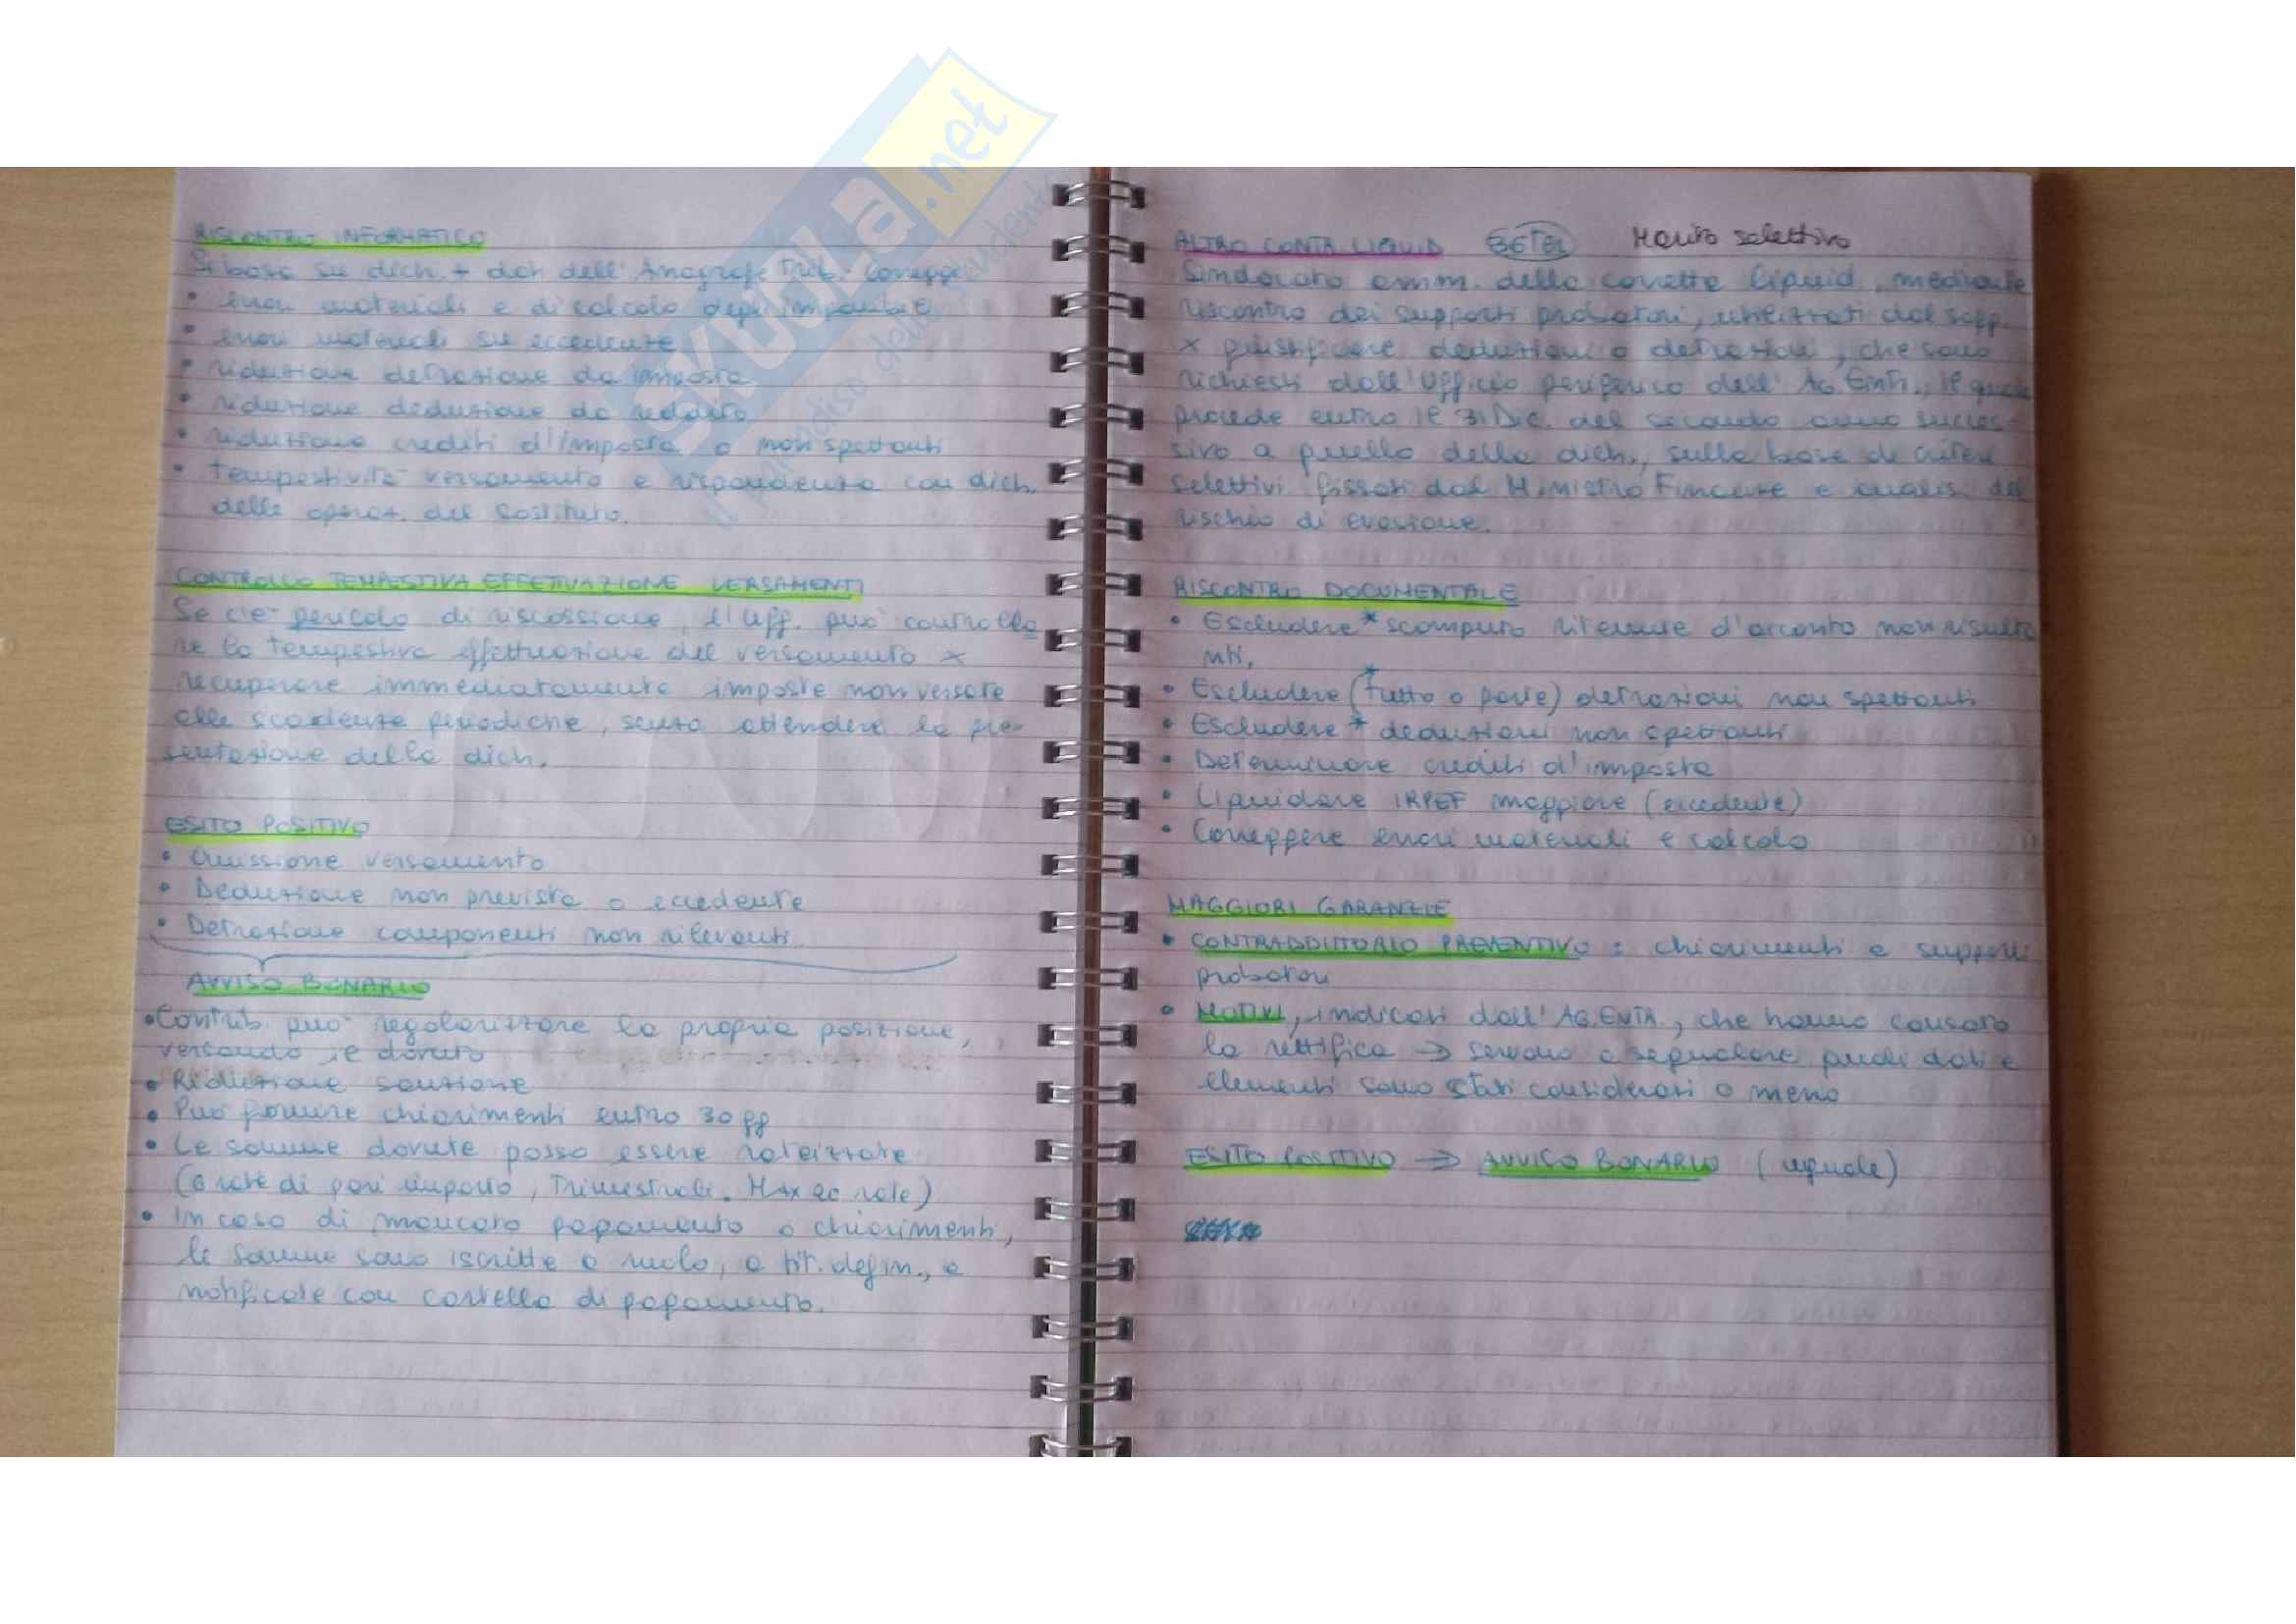 SKUOLA.net
RISCONTRO INFORMATICO
Si basa su dich. + dich dell'Anagrafe Trib. Corregge
• errori materiali e di calcolo degli imponibili
• errori materiali su eccedenze
• riduzione detrazione da imposta
• riduzione deduzione da reddito
• riduzione crediti d'imposta o non spettanti
• tempestività versamento e rispondenza con dich.
delle operaz. del sostituto.
CONTROLLO TEMPESTIVA EFFETTUAZIONE VERSAMENTI
Se c'è pericolo di riscossione, l'Uff. può controlla
re la tempestiva effettuazione del versamento x
recuperare immediatamente imposte non versate
alle scadenze periodiche, senza attendere la pre-
sentazione della dich.
ESITO POSITIVO
• Omissione versamento
• Deduzione non prevista o eccedente
• Detrazione componenti non rilevanti
AVVISO BONARIO
• Contrib. può regolarizzare la propria posizione,
versando il dovuto
• Riduzione sanzione
• Può fornire chiarimenti entro 30 gg
• Le somme dovute posso essere rateizzate
(8 rate di pari importo, Trimestrali. Max 20 rate)
• In caso di mancato pagamento o chiarimenti,
le somme sono iscritte a ruolo, a tit. defin., e
notificate con cartella di pagamento.
ALTRO CONTR. LIQUID 36 TER Mauro selettivo
Sindacato amm. della corretta liquid, mediante
riscontro dei supporti probatori, utilizzati dal sogg.
x giustificare deduzioni o detrazioni, che sono
richiesti dall'Ufficio periferico dell'Ag. Entr., il quale
procede entro il 31 Dic. del secondo anno succes-
sivo a quello della dich., sulla base di criteri
selettivi fissati dal Ministro Finanze e analisi del
rischio di evasione.
RISCONTRO DOCUMENTALE
• Escludere * scomputo ritenute d'acconto non risulta
nti,
• Escludere (* tutto o parte) detrazioni non spettanti
• Escludere * deduzioni non spettanti
• Determinare crediti d'imposta
• Liquidare IRPEF maggiore (eccedente)
• Correggere errori materiali e calcolo
MAGGIORI GARANZIE
• CONTRADDITTORIO PREVENTIVO : chiarimenti e supporti
probatori
• MOTIVI, indicati dall'AG. ENTR., che hanno causato
la rettifica → servono a segnalare quali dati e
elementi sono stati considerati o meno
ESITO POSITIVO → AVVISO BONARIO (uguale)